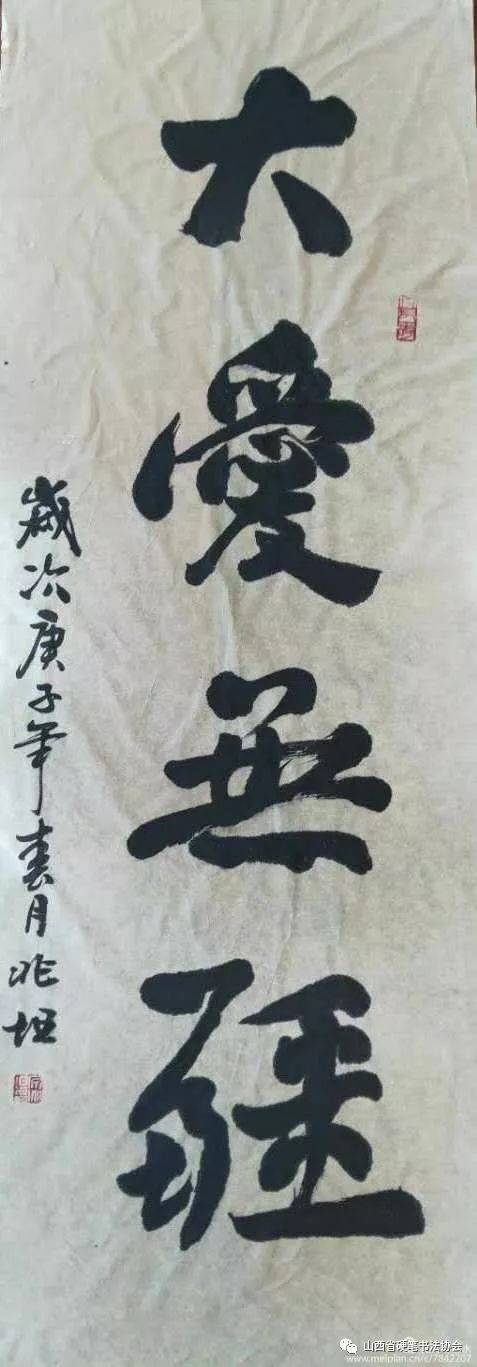 大愛無疆
歲次庚子年春月兆坦
山西省硬笔书法协会
www.meipian.cn/c/7842207